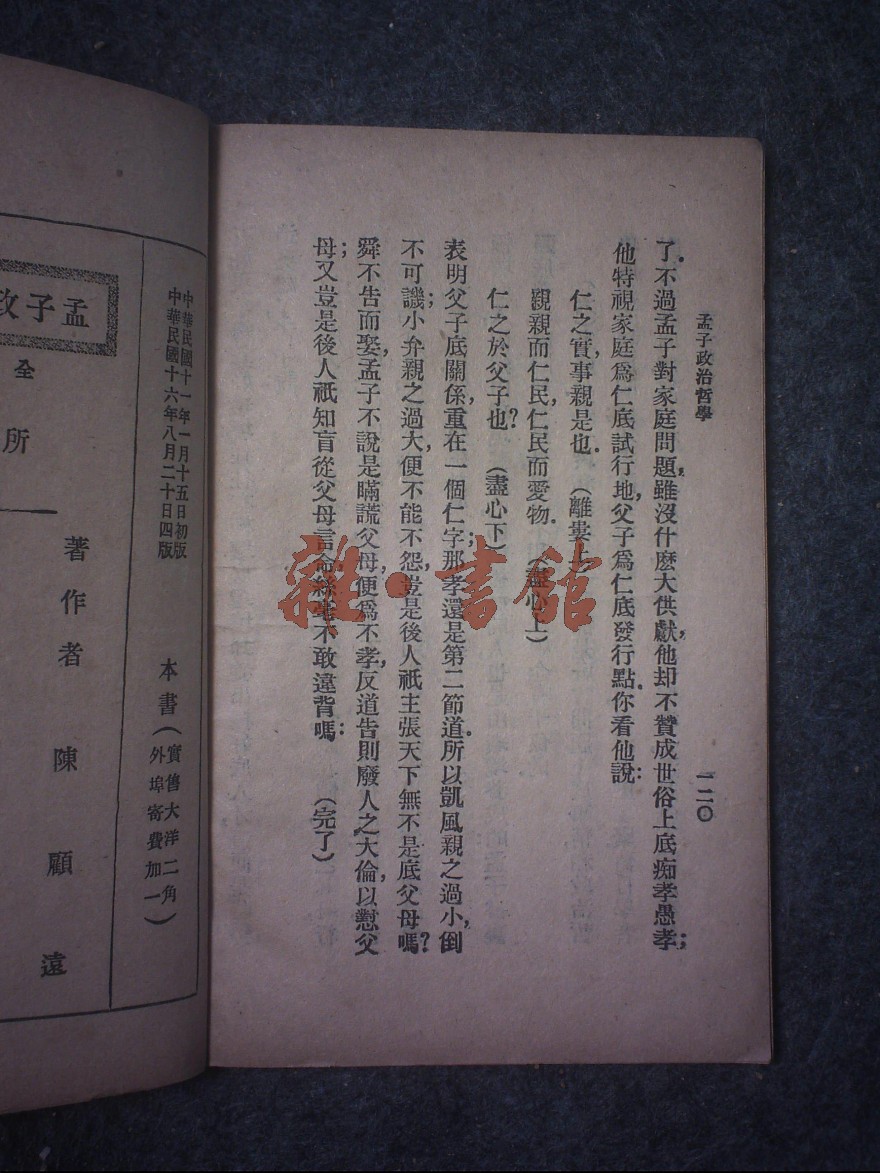 孟子政治哲學
一二〇
了.不過孟子對家庭問題,雖沒什麽大供獻,他却不贊成世俗上底痴孝愚孝;
他特視家庭爲仁底試行地,父子爲仁底發行點.你看他說:
仁之實,事親是也.(離婁上)
親親而仁民,仁民而愛物.(盡心上)
仁之於父子也?(盡心下)
表明父子底關係,重在一個仁字;那孝還是第二節道.所以凱風親之過小,倒
不可譏;小弁親之過大,便不能不怨,豈是後人祇主張天下無不是底父母嗎?
舜不告而娶,孟子不說是瞞謊父母,便爲不孝,反道告則廢人之大倫,以懟父
母;又豈是後人祇知盲從父母言命,絲毫不敢違背嗎:(完了)
雜·書館
中華民國十一年一月十五日初版
中華民國十六年八月二十日四版
本書(實售大洋二角
外埠寄費加一)
孟子政
全
所
著作者 陳顧遠